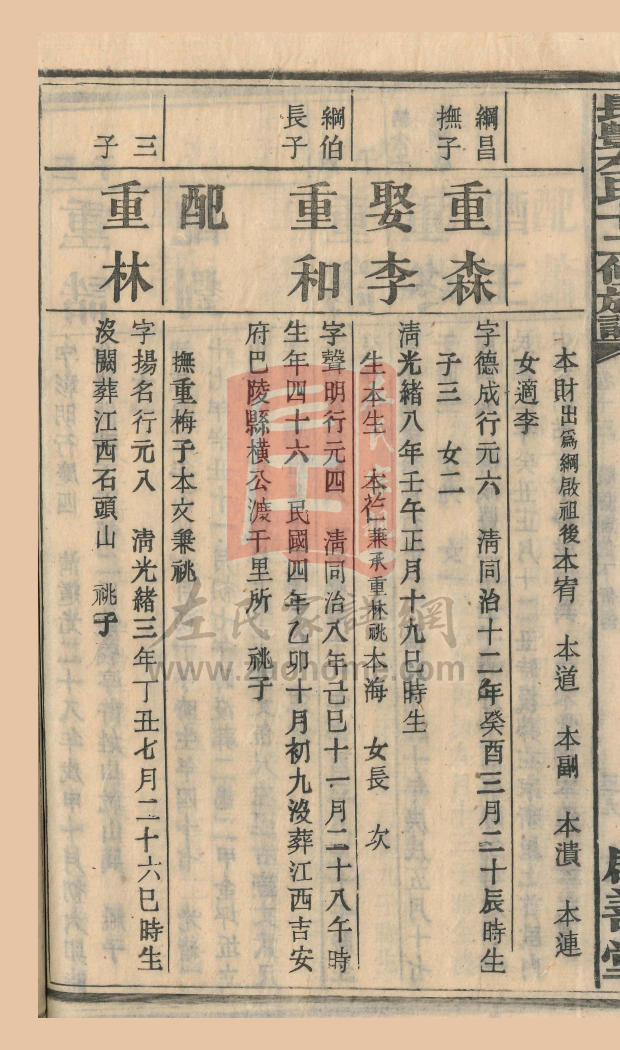 氏十二修族譜
善堂
本財出爲綱啟祖後本宥　本道　本副　本瀆　本連
女適李
綱昌
撫子
重森
字德成行元六　淸同治十二年癸酉三月二十辰時生
子三　女二
娶李
淸光緒八年壬午正月十九巳時生
生本生　本兼承重林祧本海　女長　次
綱伯
長子
重和
字聲明行元四　淸同治八年己巳十一月二十八午時
生年四十六　民國四年乙卯十月初九沒葬江西吉安
府巴陵縣橫公渡千里所　祧子
配
撫重梅子本文兼祧
三
子
重林
字揚名行元八　淸光緒三年丁丑七月二十六巳時生
沒闕葬江西石頭山　祧子
左氏家譜網
www.zuohome.com